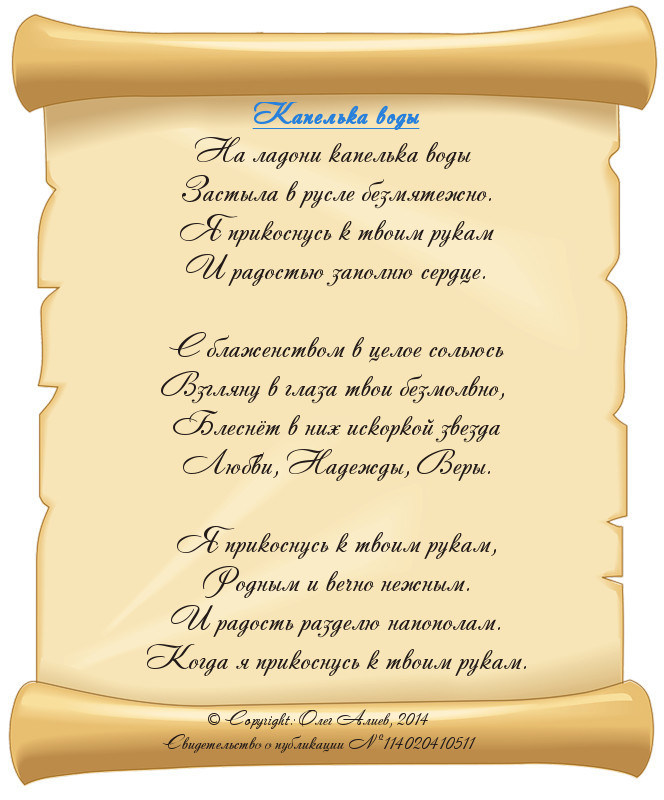 Капелька воды
На ладони капелька воды
Застыла в русле безмятежно.
Я прикоснусь к твоим рукам
И радостью заполню сердце.
С блаженством в целое сольюсь
Взгляну в глаза твои безмолвно,
Блеснёт в них искоркой звезда
Любви, Надежды, Веры.
Я прикоснусь к твоим рукам,
Родным и вечно нежным.
И радость разделю напополам.
Когда я прикоснусь к твоим рукам.
© Copyright: Олег Алиев, 2014
Свидетельство о публикации №114020410511